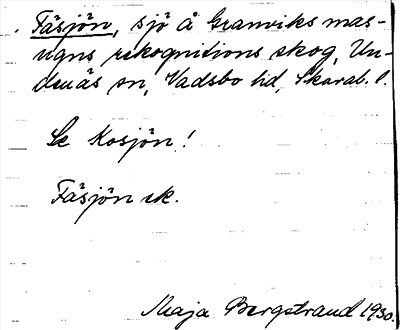 Fäsjön, sjö å Granviks mas-
ugns rekognitions skog, Un-
denäs sn, Vadsbo hd, Skarab. l.
Se Kosjön!
Fäsjön uk.
Maja Bergstrand 1930.